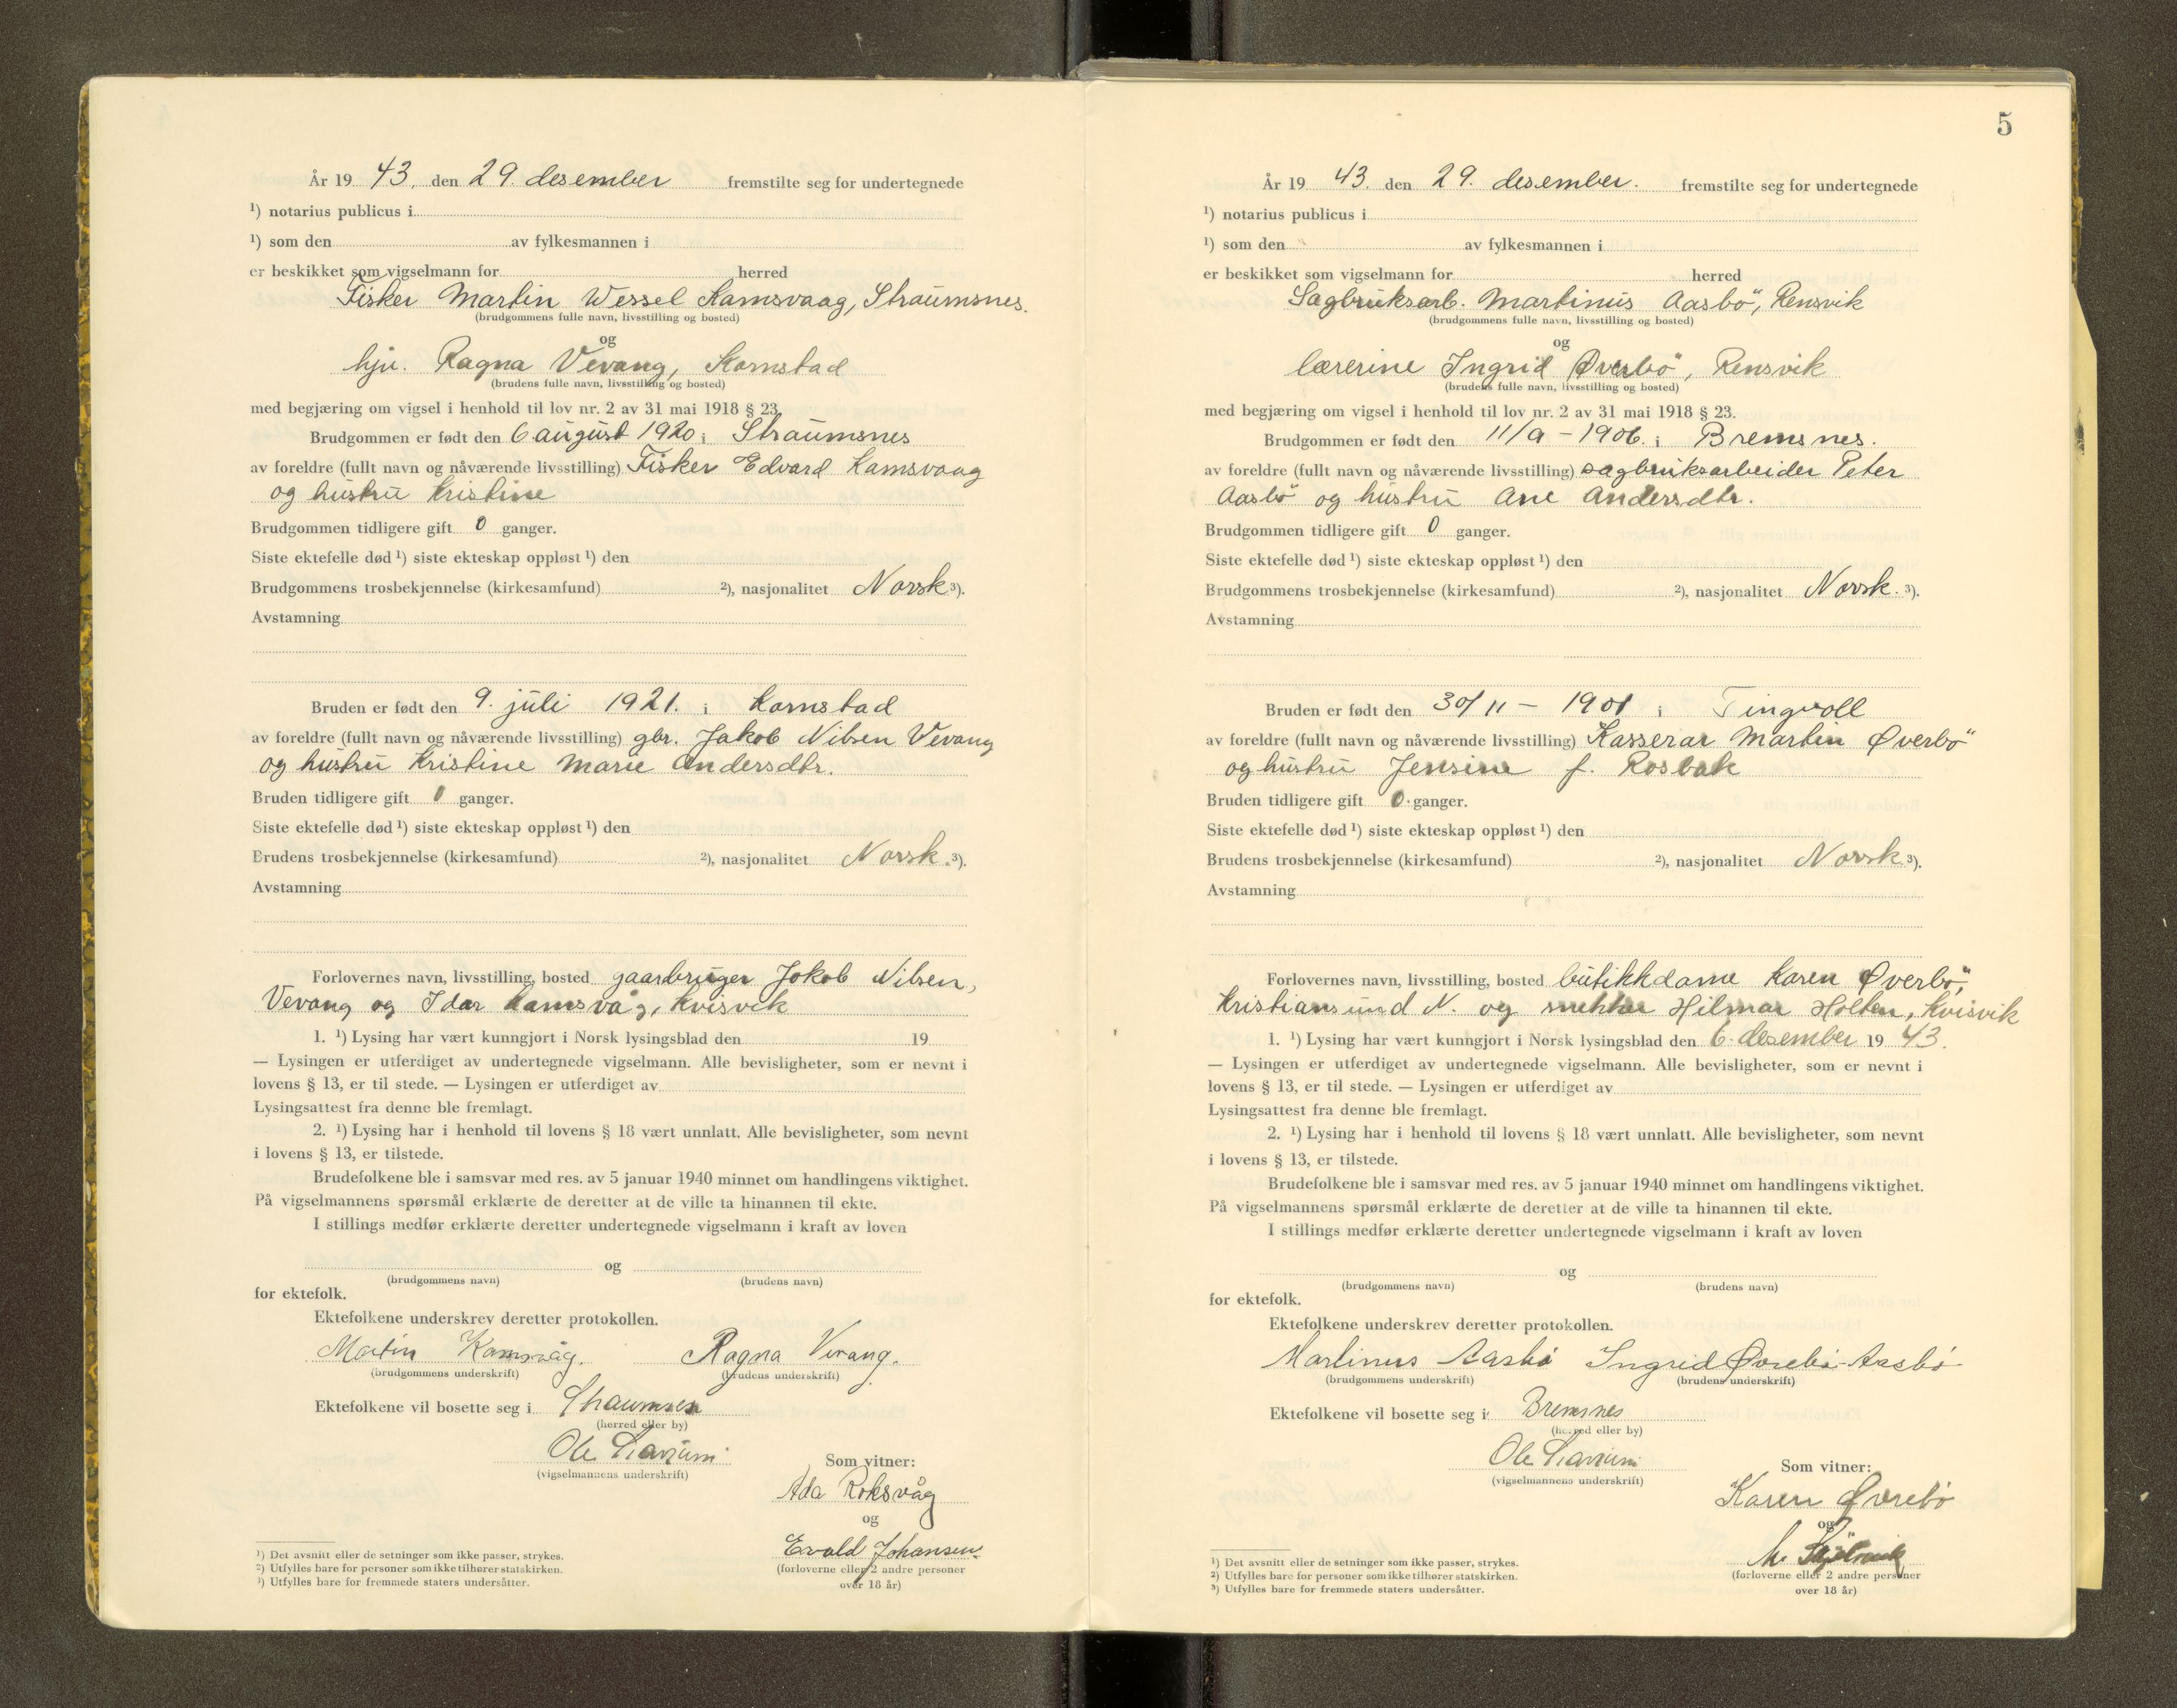 År 19 43. den 29. desember fremstilte seg for undertegnede
¹) notarius publicus i
¹) som den av fylkesmannen i
er beskikket som vigselmann for herred
Fisker Martin Wessel Kamsvaag, Straumsnes.
(brudgommens fulle navn, livsstilling og bosted)
og
hju. Ragna Vevang, Kornstad
(brudens fulle navn, livsstilling og bosted)
med begjæring om vigsel i henhold til lov nr. 2 av 31 mai 1918 § 23.
Brudgommen er født den 6. august 1920 i Straumsnes
av foreldre (fullt navn og nåværende livsstilling) Fisker Edvard Kamsvaag
og hustru Kristine
Brudgommen tidligere gift 0 ganger.
Siste ektefelle død ¹) siste ekteskap oppløst ¹) den
Brudgommens trosbekjennelse (kirkesamfund) ²), nasjonalitet Norsk ³).
Avstamning
Bruden er født den 9. juli 1921. i Kornstad
av foreldre (fullt navn og nåværende livsstilling) gbr. Jakob Nilsen Vevang
og hustru Kristine Marie Andersdtr.
Bruden tidligere gift 0 ganger.
Siste ektefelle død ¹) siste ekteskap oppløst ¹) den
Brudens trosbekjennelse (kirkesamfund) ²), nasjonalitet Norsk. ³).
Avstamning
Forlovernes navn, livsstilling, bosted gaarbruger Jakob Nilsen,
Vevang og Idar Kamsvåg, Kvisvik
1. ¹) Lysing har vært kunngjort i Norsk lysingsblad den 19
— Lysingen er utferdiget av undertegnede vigselmann. Alle bevisligheter, som er nevnt i
lovens § 13, er til stede. — Lysingen er utferdiget av
Lysingsattest fra denne ble fremlagt.
2. ¹) Lysing har i henhold til lovens § 18 vært unnlatt. Alle bevisligheter, som nevnt
i lovens § 13, er tilstede.
Brudefolkene ble i samsvar med res. av 5 januar 1940 minnet om handlingens viktighet.
På vigselmannens spørsmål erklærte de deretter at de ville ta hinannen til ekte.
I stillings medfør erklærte deretter undertegnede vigselmann i kraft av loven
og
(brudgommens navn) (brudens navn)
for ektefolk.
Ektefolkene underskrev deretter protokollen.
Martin Kamsvåg. Ragna Vevang.
(brudgommens underskrift) (brudens underskrift)
Ektefolkene vil bosette seg i Straumsnes
(herred eller by)
Ole
(vigselmannens underskrift)
Som vitner:
Ada Roksvåg
og
Evald Johansen.
(forloverne eller 2 andre personer
over 18 år)
¹) Det avsnitt eller de setninger som ikke passer, strykes.
²) Utfylles bare for personer som ikke tilhører statskirken.
³) Utfylles bare for fremmede staters undersåtter.
5
År 19 43. den 29. desember. fremstilte seg for undertegnede
¹) notarius publicus i
¹) som den av fylkesmannen i
er beskikket som vigselmann for herred
Sagbruksarb. Martinus Aasbö, Rensvik
(brudgommens fulle navn, livsstilling og bosted)
og
lærerine Ingrid Øverbö, Rensvik
(brudens fulle navn, livsstilling og bosted)
med begjæring om vigsel i henhold til lov nr. 2 av 31 mai 1918 § 23.
Brudgommen er født den 11/9 - 1906. i Bremsnes.
av foreldre (fullt navn og nåværende livsstilling) sagbruksarbeider Peter
Aasbö og hustru Ane Andersdtr.
Brudgommen tidligere gift 0 ganger.
Siste ektefelle død ¹) siste ekteskap oppløst ¹) den
Brudgommens trosbekjennelse (kirkesamfund) ²), nasjonalitet Norsk. ³).
Avstamning
Bruden er født den 30/11 - 1901 i Tingvoll
av foreldre (fullt navn og nåværende livsstilling) Kasserar Martin Øverbö
og hustru Jensine f. Rosbak
Bruden tidligere gift 0 ganger.
Siste ektefelle død ¹) siste ekteskap oppløst ¹) den
Brudens trosbekjennelse (kirkesamfund) ²), nasjonalitet Norsk ³).
Avstamning
Forlovernes navn, livsstilling, bosted butikkdame Karen Øverbö,
Kristiansund N. og snekker Hilmar Holten, Kvisvik
1. ¹) Lysing har vært kunngjort i Norsk lysingsblad den 6. desember 19 43.
— Lysingen er utferdiget av undertegnede vigselmann. Alle bevisligheter, som er nevnt i
lovens § 13, er til stede. — Lysingen er utferdiget av
Lysingsattest fra denne ble fremlagt.
2. ¹) Lysing har i henhold til lovens § 18 vært unnlatt. Alle bevisligheter, som nevnt
i lovens § 13, er tilstede.
Brudefolkene ble i samsvar med res. av 5 januar 1940 minnet om handlingens viktighet.
På vigselmannens spørsmål erklærte de deretter at de ville ta hinannen til ekte.
I stillings medfør erklærte deretter undertegnede vigselmann i kraft av loven
og
(brudgommens navn) (brudens navn)
for ektefolk.
Ektefolkene underskrev deretter protokollen.
Martinus Aasbø Ingrid Øvrebø-Aasbø
(brudgommens underskrift) (brudens underskrift)
Ektefolkene vil bosette seg i Bremsnes
(herred eller by)
Ole
(vigselmannens underskrift)
Som vitner:
Karen Øvrebø
og
(forloverne eller 2 andre personer
over 18 år)
¹) Det avsnitt eller de setninger som ikke passer, strykes.
²) Utfylles bare for personer som ikke tilhører statskirken.
³) Utfylles bare for fremmede staters undersåtter.